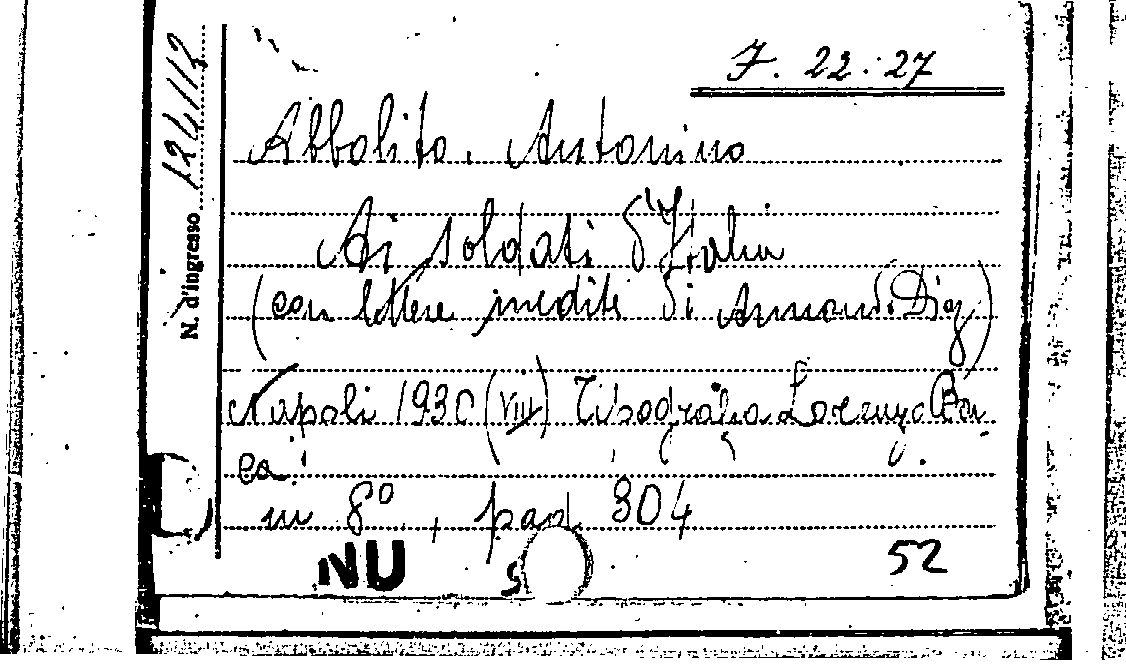 N. d'ingresso 124112
F. 22.27
Abbolito. Antonino
Ai soldati d'Italia
(con lettere inedite di Armando Diaz)
Napoli 1930 (VIII) Tipografia Lorenzo Bar
ca.
in 8º, pag. 304
NU
52